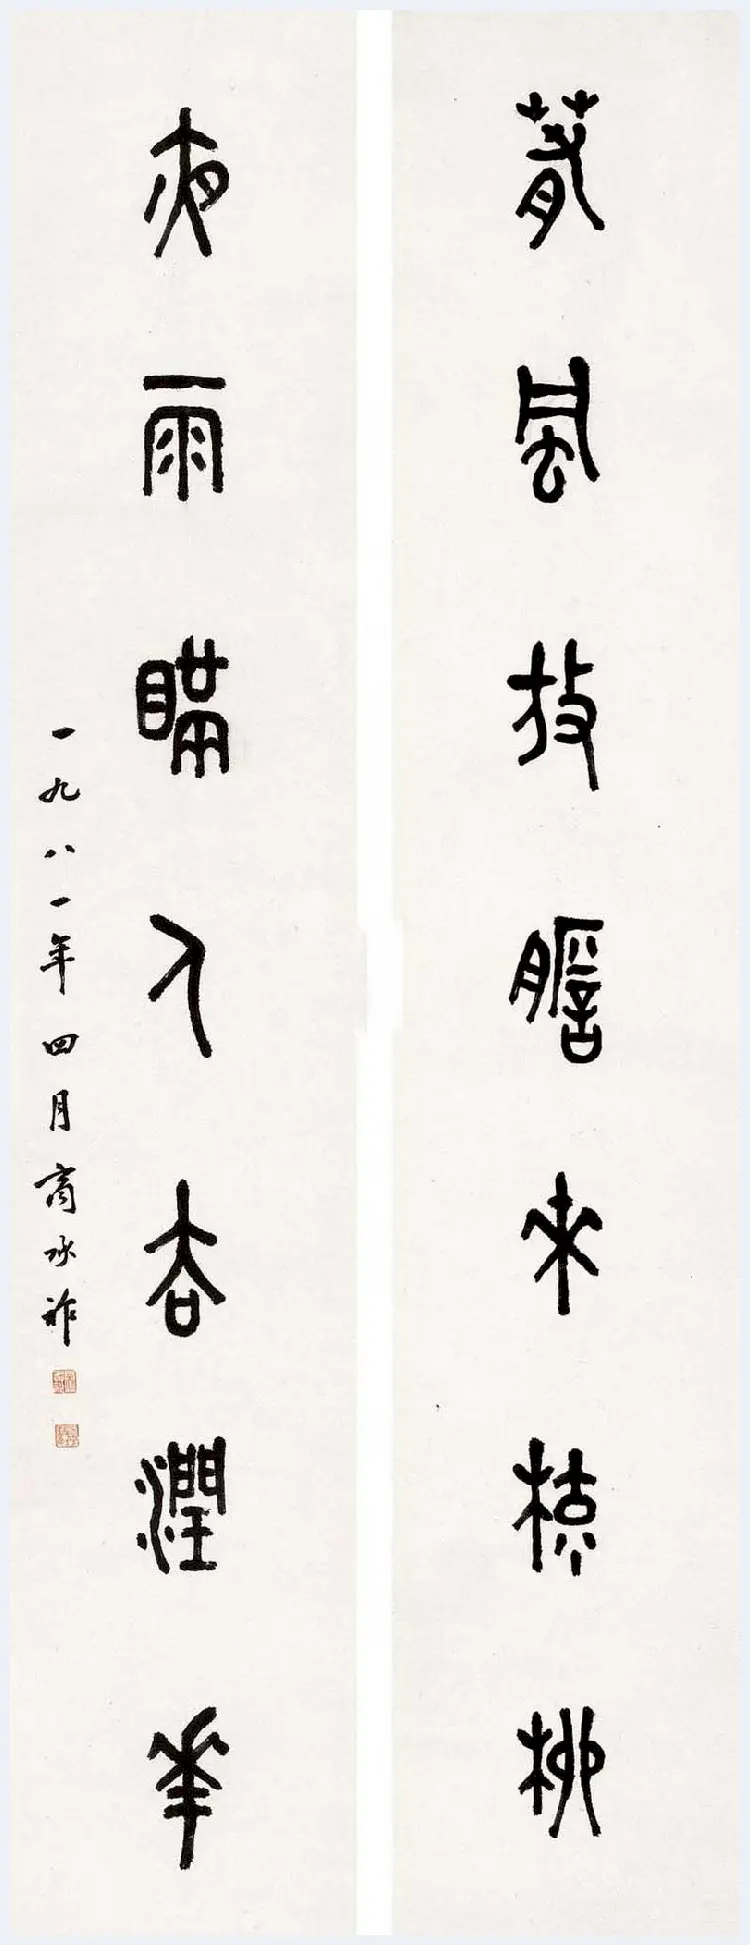 春風放膽來梳柳
夜雨瞞人去潤華
一九八一年四月商承祚